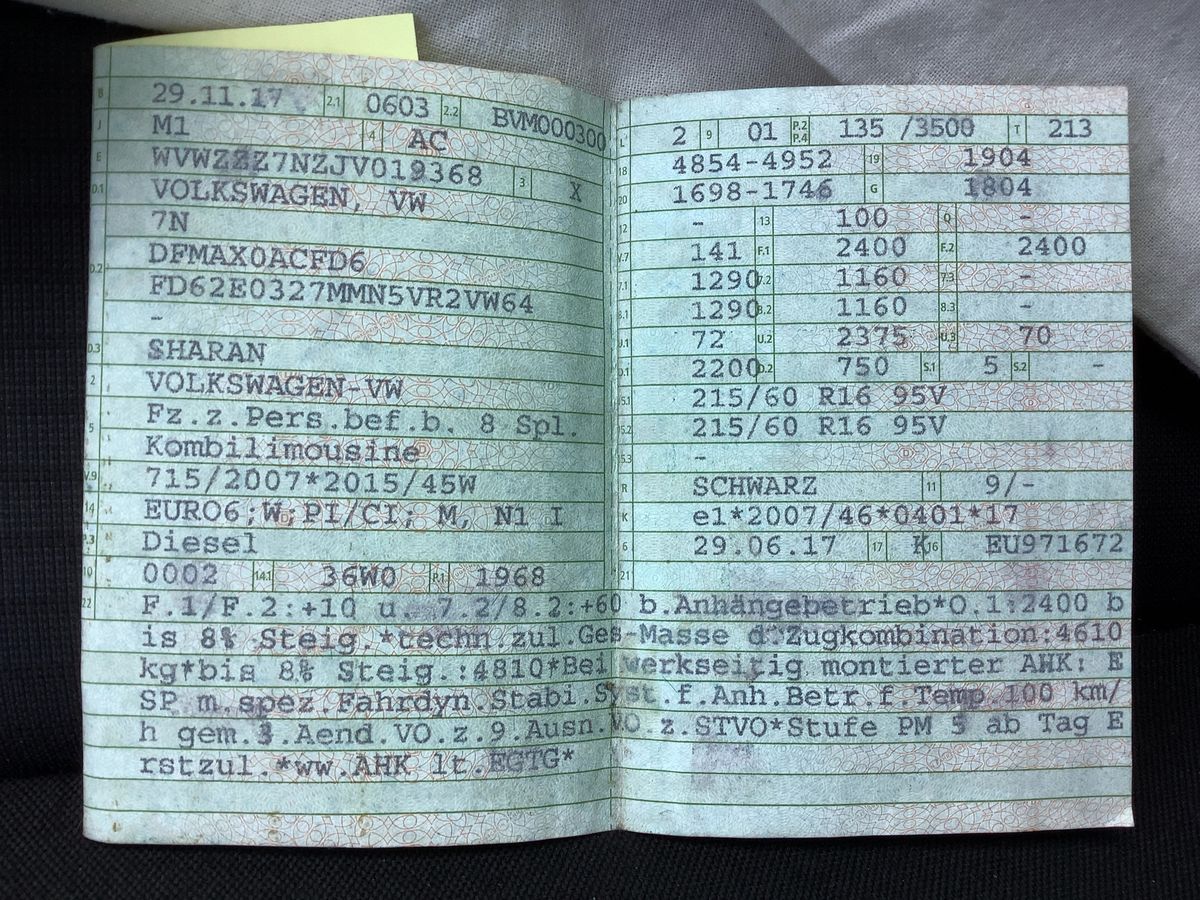 B 29.11.17 2.1 0603 2.2 BVM000300
J M1 4 AC
E WVWZZZ7NZJV019368 3 X
D.1 VOLKSWAGEN, VW
7N
D.2 DFMAX0ACFD6
FD62E0327MMN5VR2VW64
-
D.3 SHARAN
2 VOLKSWAGEN-VW
5 Fz.z.Pers.bef.b. 8 Spl.
Kombilimousine
V.9 715/2007*2015/45W
14 EURO6;W;PI/CI; M, N1 I
P.3 Diesel
10 0002 14.1 36W0 P.1 1968
L 2 9 01 P.2 P.4 135 /3500 T 213
18 4854-4952 19 1904
20 1698-1746 G 1804
12 - 13 100 Q -
V.7 141 F.1 2400 F.2 2400
7.1 1290 7.2 1160 7.3 -
8.1 1290 8.2 1160 8.3 -
U.1 72 U.2 2375 U.3 70
O.1 2200 O.2 750 S.1 5 S.2 -
15.1 215/60 R16 95V
15.2 215/60 R16 95V
15.3 -
R SCHWARZ 11 9/-
K e1*2007/46*0401*17
6 29.06.17 17 K 16 EU971672
21
22 F.1/F.2:+10 u. 7.2/8.2:+60 b.Anhängebetrieb*O.1:2400 b
is 8% Steig.*techn.zul.Ges-Masse d.Zugkombination:4610
kg*bis 8% Steig.:4810*Bei werkseitig montierter AHK: E
SP m.spez.Fahrdyn.Stabi.Syst.f.Anh.Betr.f.Temp.100 km/
h gem.3.Aend.VO.z.9.Ausn.VO.z.STVO*Stufe PM 5 ab Tag E
rstzul.*ww.AHK lt.EGTG*